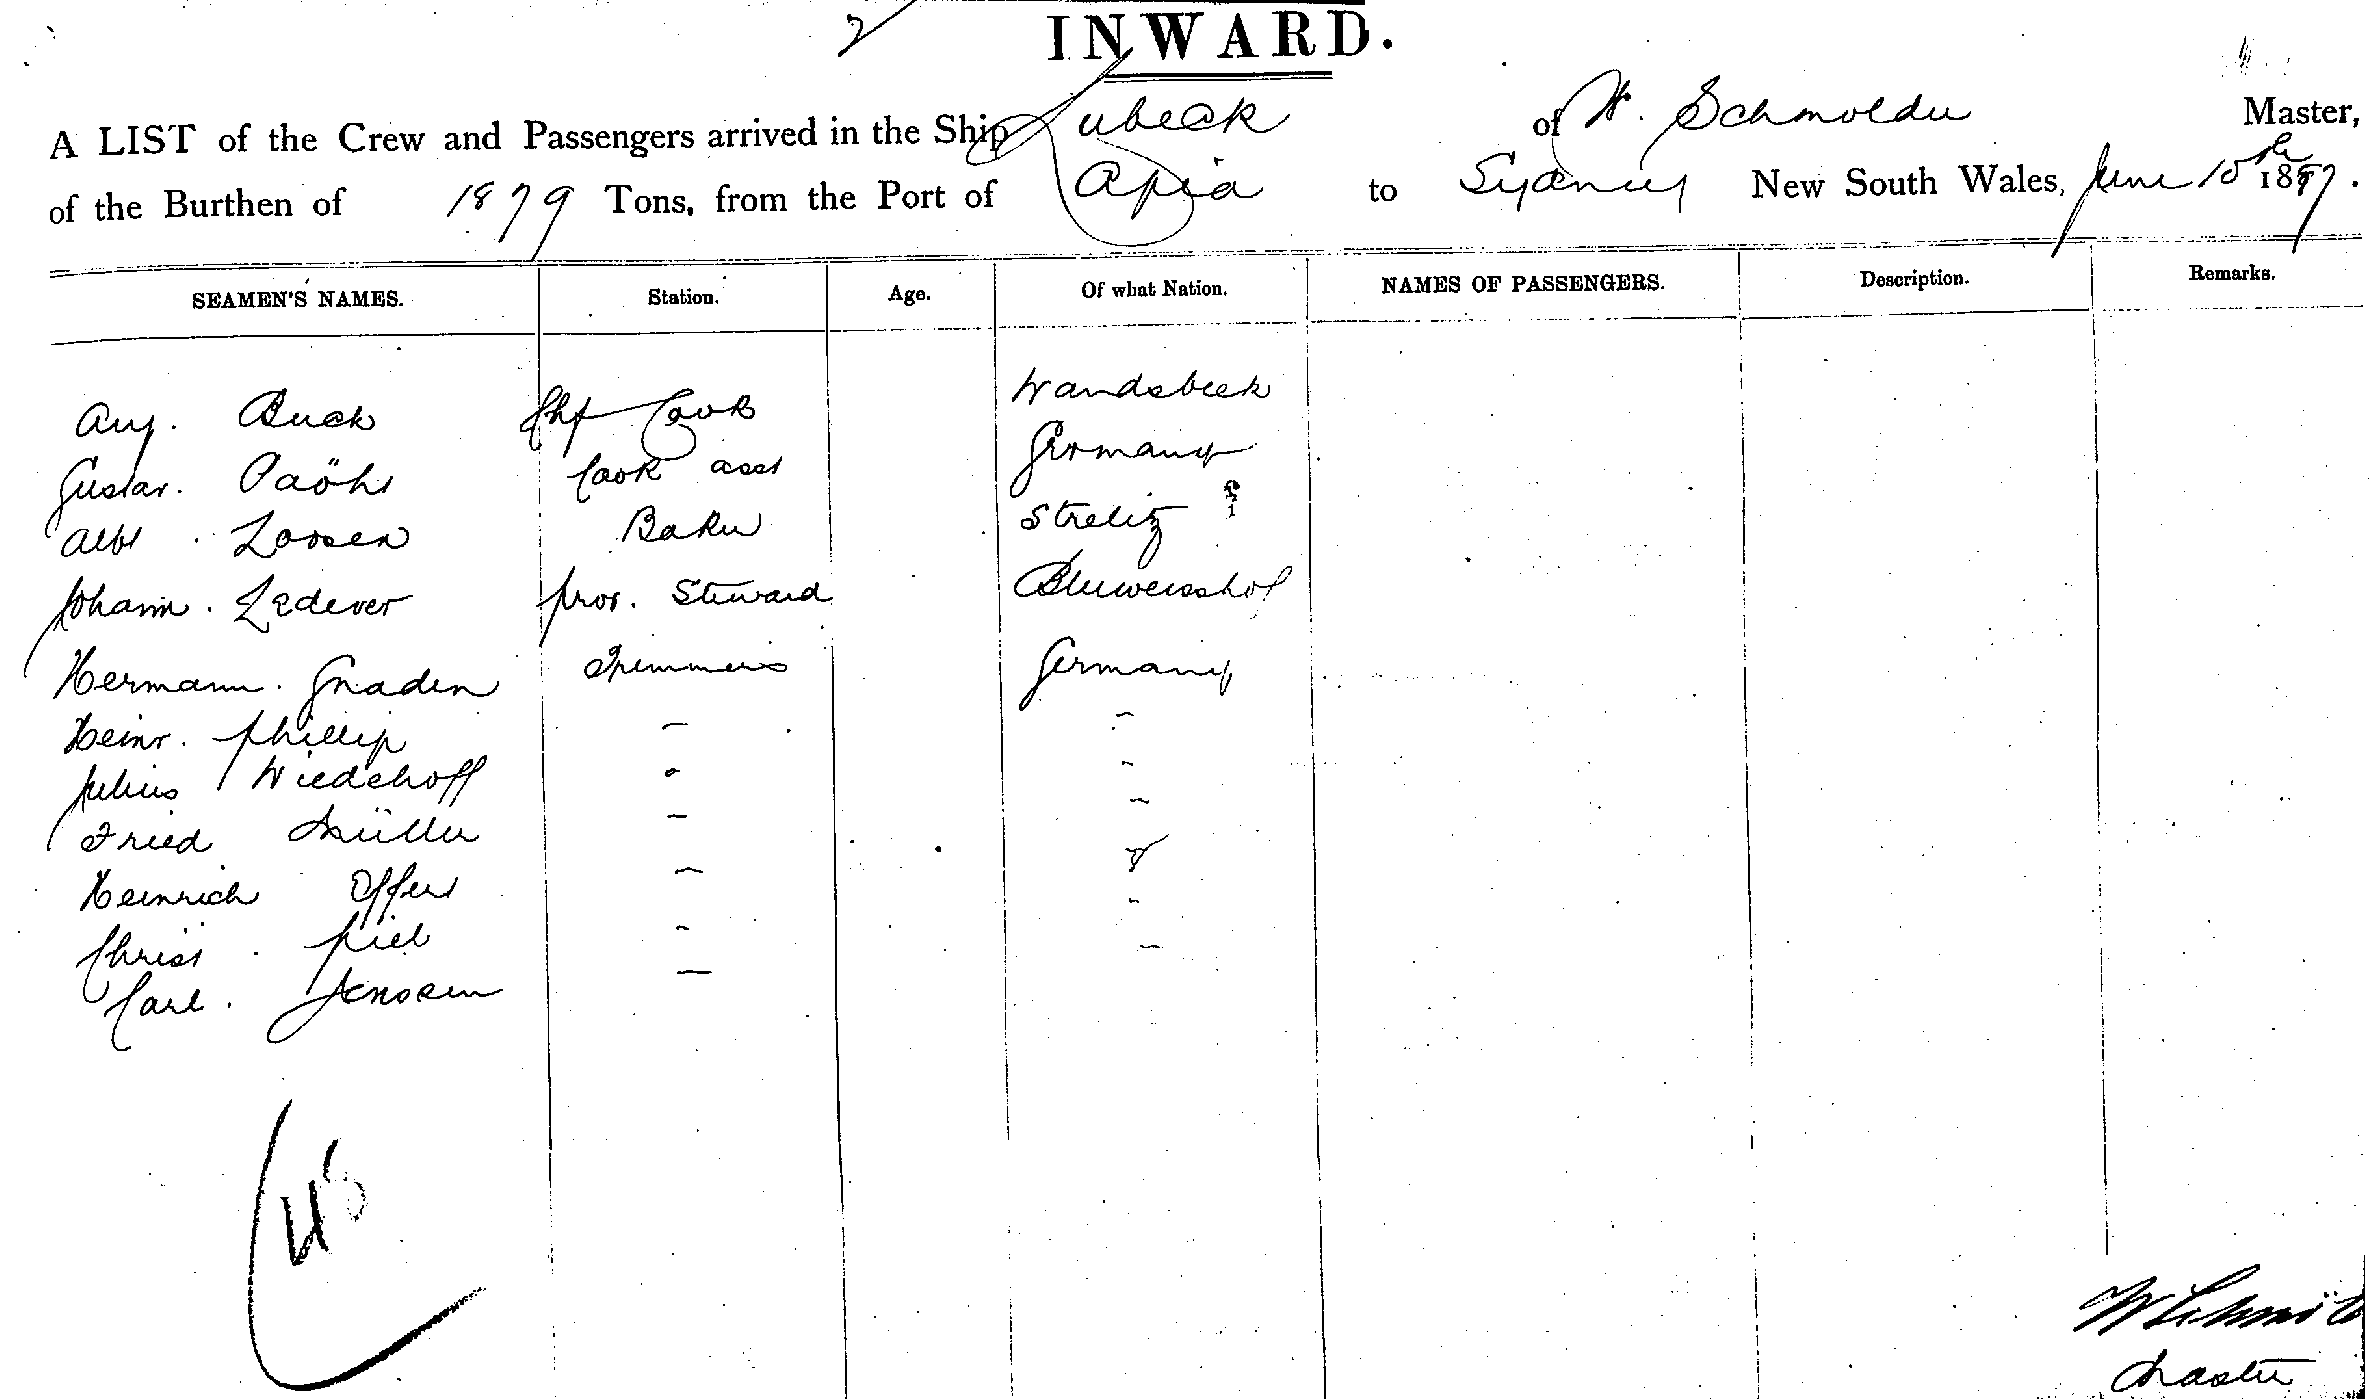 INWARD.
A LIST of the Crew and Passengers arrived in the Ship Lubeck of W. Schmolder Master,
of the Burthen of 1879 Tons, from the Port of Apia to Sydney New South Wales, June 10th 1897.
SEAMEN'S NAMES. Station. Age. Of what Nation. NAMES OF PASSENGERS. Description. Remarks.
Aug. Buck Chf Cook Wandsbeek
Gustav. Cook asst Germany
Albt Loosen Baker Strelitz
Johann. Ledever prov. Steward
Hermann. Gnaden Trimmers Germany
Heinr. Phillip — —
Julius Wiedehoff — —
Fried Müller — —
Heinrich Offers — —
Christ. Piel — —
Carl. Jenssen — —
Master